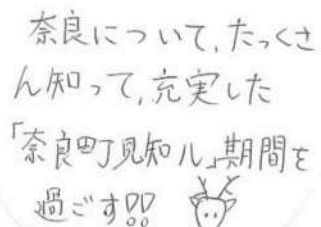 奈良について、たっくさ
ん知って、充実した
「奈良町見知ル」期間を
過ごす!!